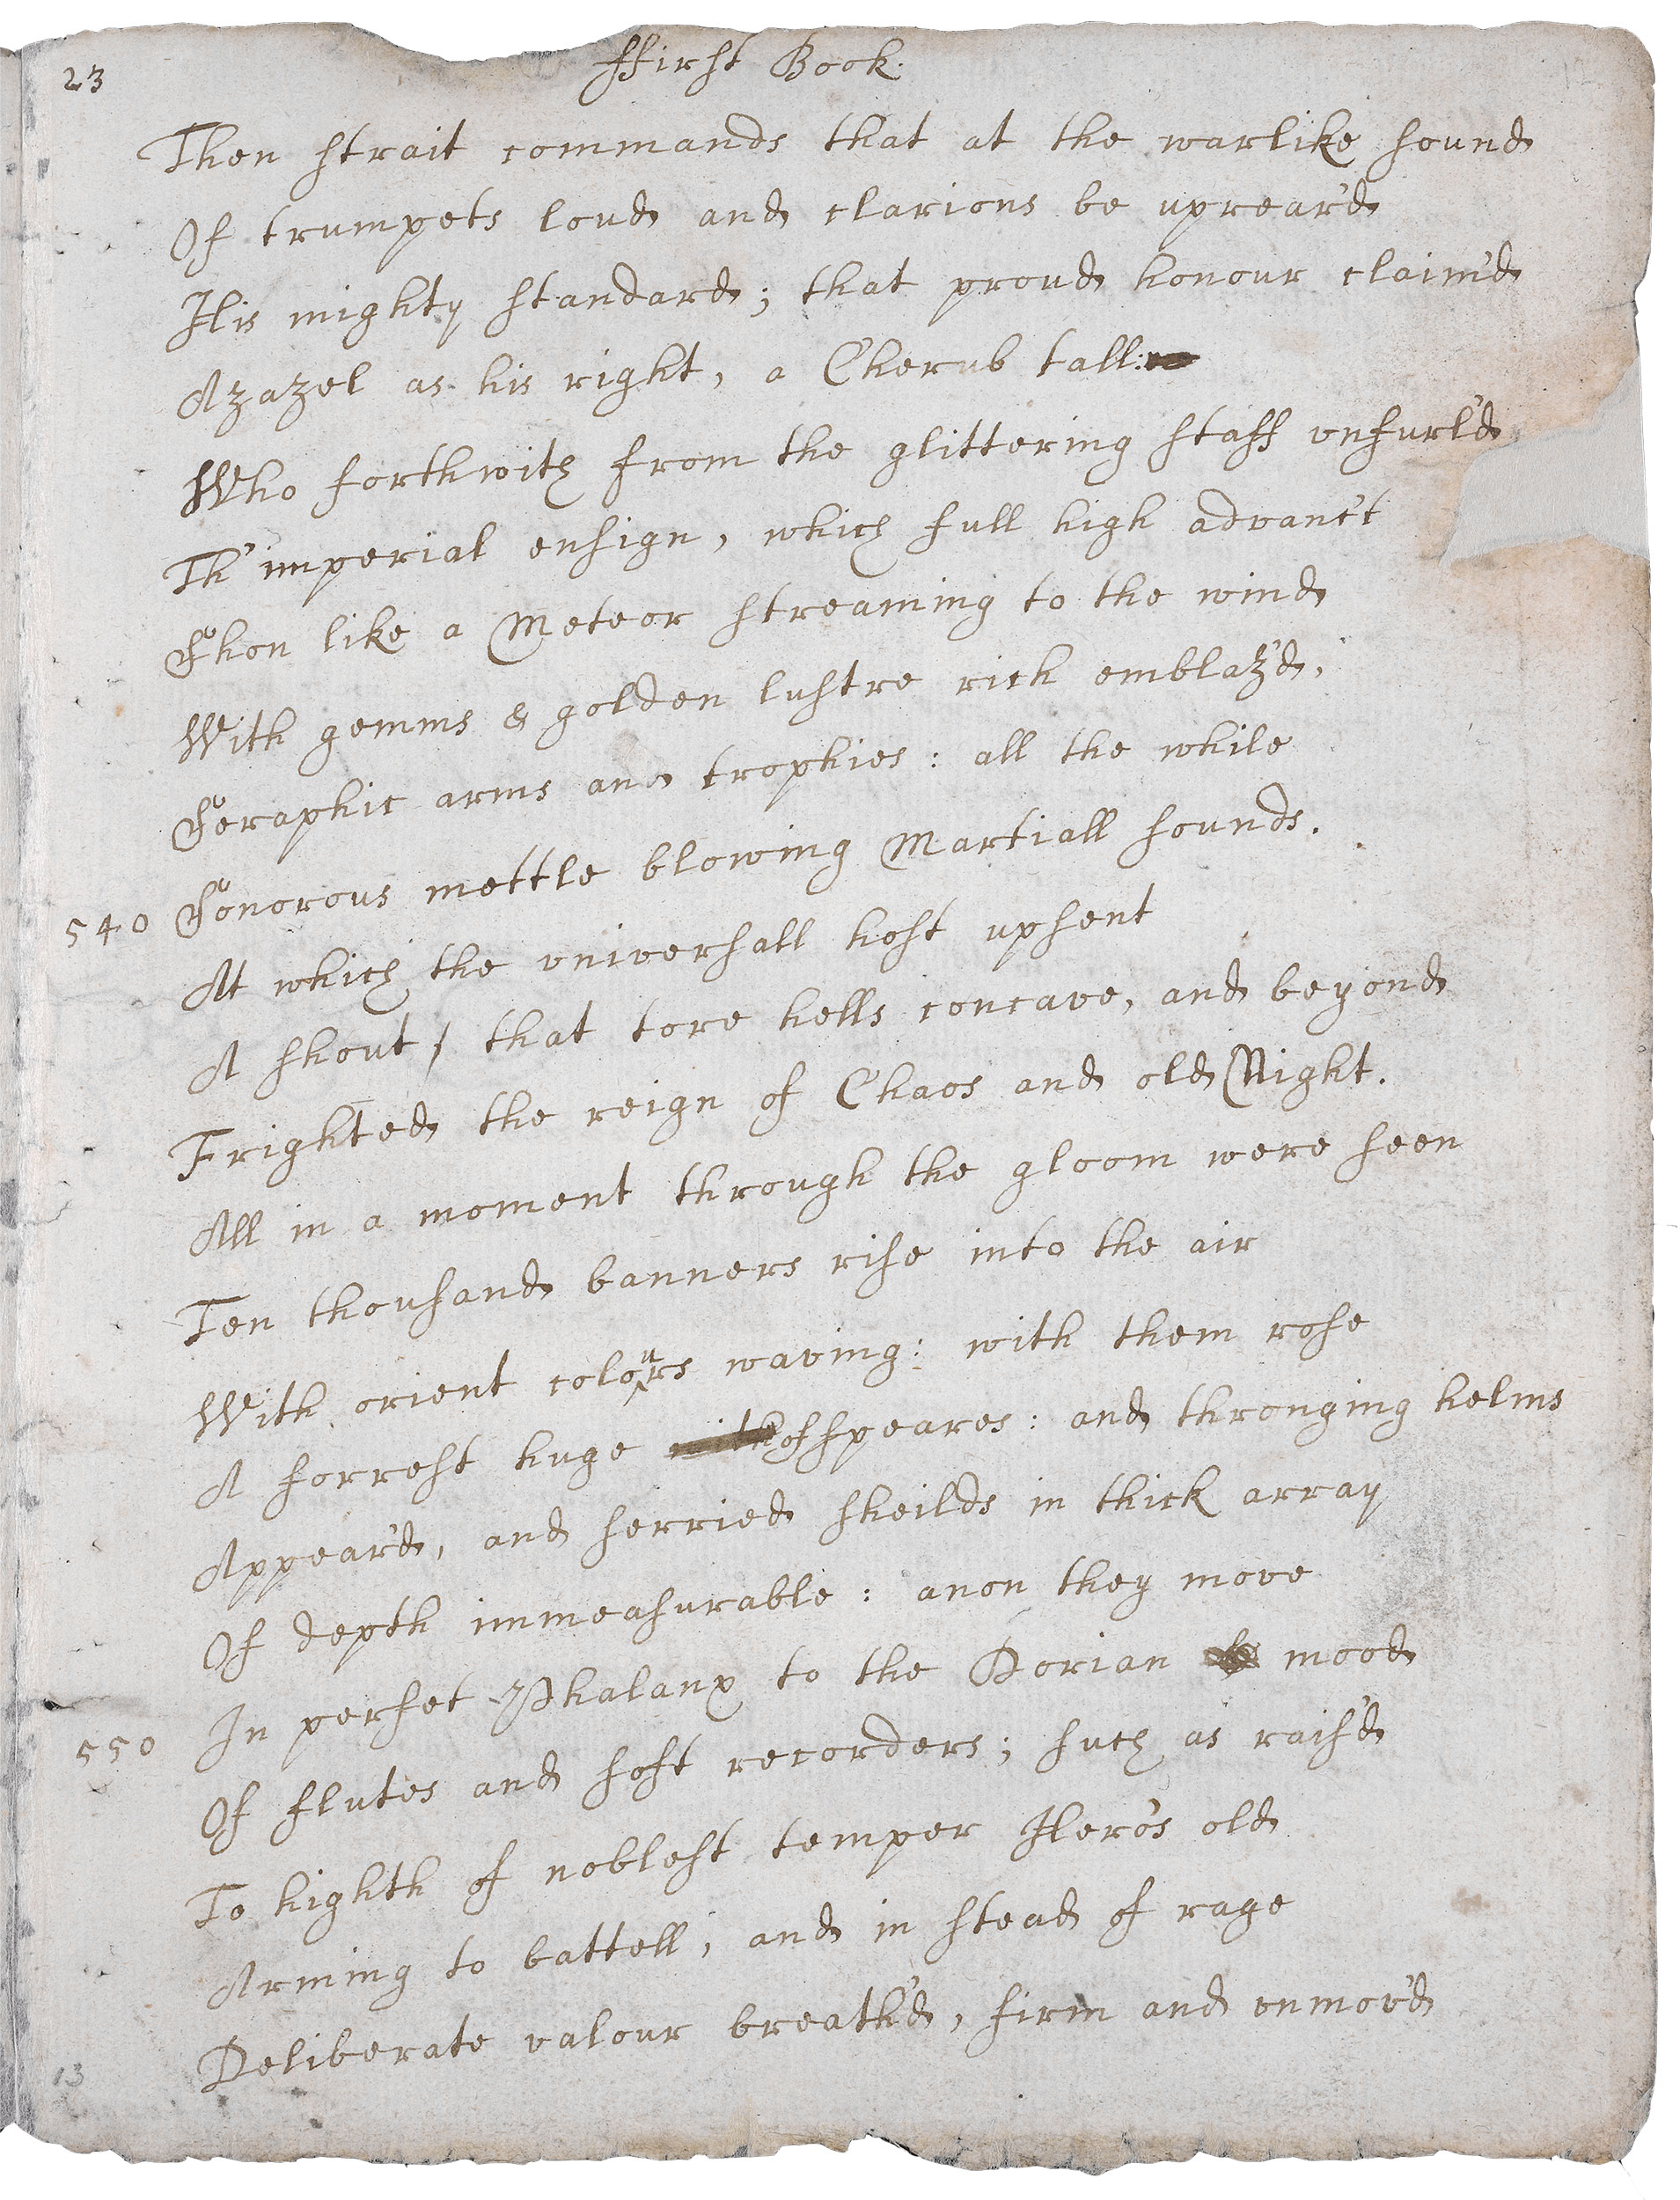 23
ffirst Book.
Then strait commands that at the warlike sound
Of trumpets loud and clarions be uprear'd
His mighty standard; that proud honour claim'd
Azazel as his right, a Cherub tall:
Who forthwith from the glittering staff vnfurl'd
Th' imperial ensign, which full high advanc't
Shon like a Meteor streaming to the wind
With gemms & golden lustre rich emblaz'd,
Seraphic arms and trophies: all the while
540 Sonorous mettle blowing Martiall sounds.
At which the vniversall host upsent
A shout, that tore hells concave, and beyond
Frighted the reign of Chaos and old Night.
All in a moment through the gloom were seen
Ten thousand banners rise into the air
With orient colours waving: with them rose
A forrest huge with of speares: and thronging helms
Appear'd, and serried sheilds in thick array
Of depth immeasurable: anon they move
550 In perfet Phalanx to the Dorian mood
Of flutes and soft recorders; such as rais'd
To highth of noblest temper Hero's old
Arming to battell, and in stead of rage
Deliberate valour breath'd, firm and vnmov'd
13